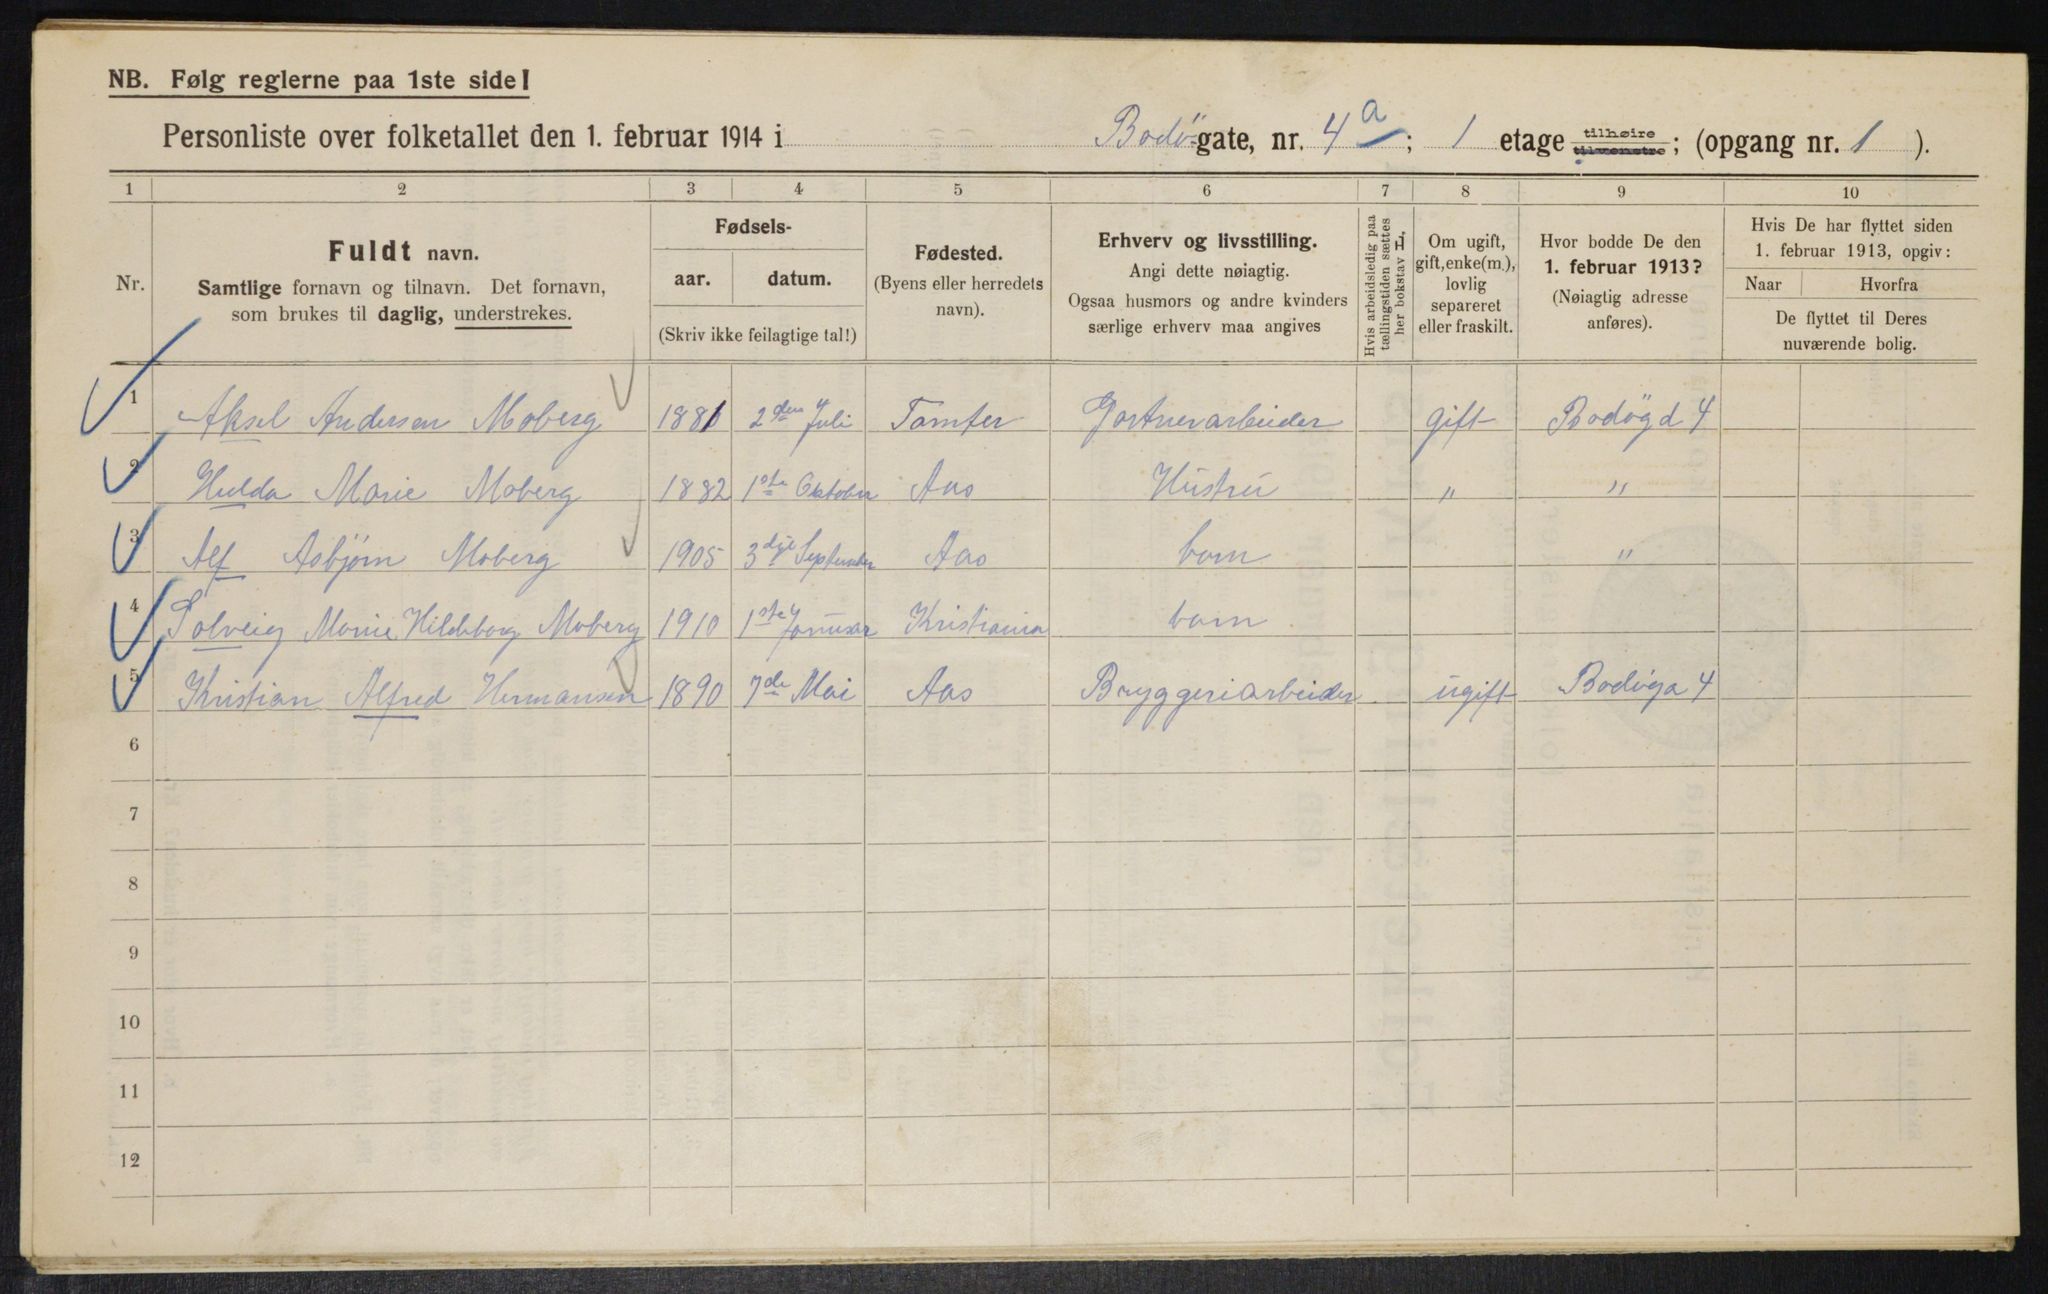 NB. Følg reglerne paa 1ste side!
Personliste over folketallet den 1. februar 1914 i Bodø-gate, nr. 4a; 1 etage tilhøire tilvenstre; (opgang nr. 1 ).
1 2 3 4 5 6 7 8 9 10
Nr.
Fuldt navn.
Samtlige fornavn og tilnavn. Det fornavn,
som brukes til daglig, understrekes.
Fødsels-
aar. datum.
(Skriv ikke feilagtige tal!)
Fødested.
(Byens eller herredets
navn).
Erhverv og livsstilling.
Angi dette nøiagtig.
Ogsaa husmors og andre kvinders
særlige erhverv maa angives
Hvis arbeidsledig paa
tællingstiden sættes
her bokstav H.
Om ugift,
gift, enke(m.),
lovlig
separeret
eller fraskilt.
Hvor bodde De den
1. februar 1913?
(Nøiagtig adresse
anføres).
Hvis De har flyttet siden
1. februar 1913, opgiv:
Naar Hvorfra
De flyttet til Deres
nuværende bolig.
1 Aksel Andersen Moberg 1881 2den Juli Gartnerarbeider gift Bodøgd 4
2 Hulda Marie Moberg 1882 1ste Oktober Aas Hustru " "
3 Alf Asbjørn Moberg 1905 3dje September Aas barn "
4 Solveig Marie Hildeborg Moberg 1910 1ste Januar Kristiania barn
5 Kristian Alfred Hermansen 1890 7de Mai Aas Bryggeriarbeider ugift Bodøga 4
6
7
8
9
10
11
12